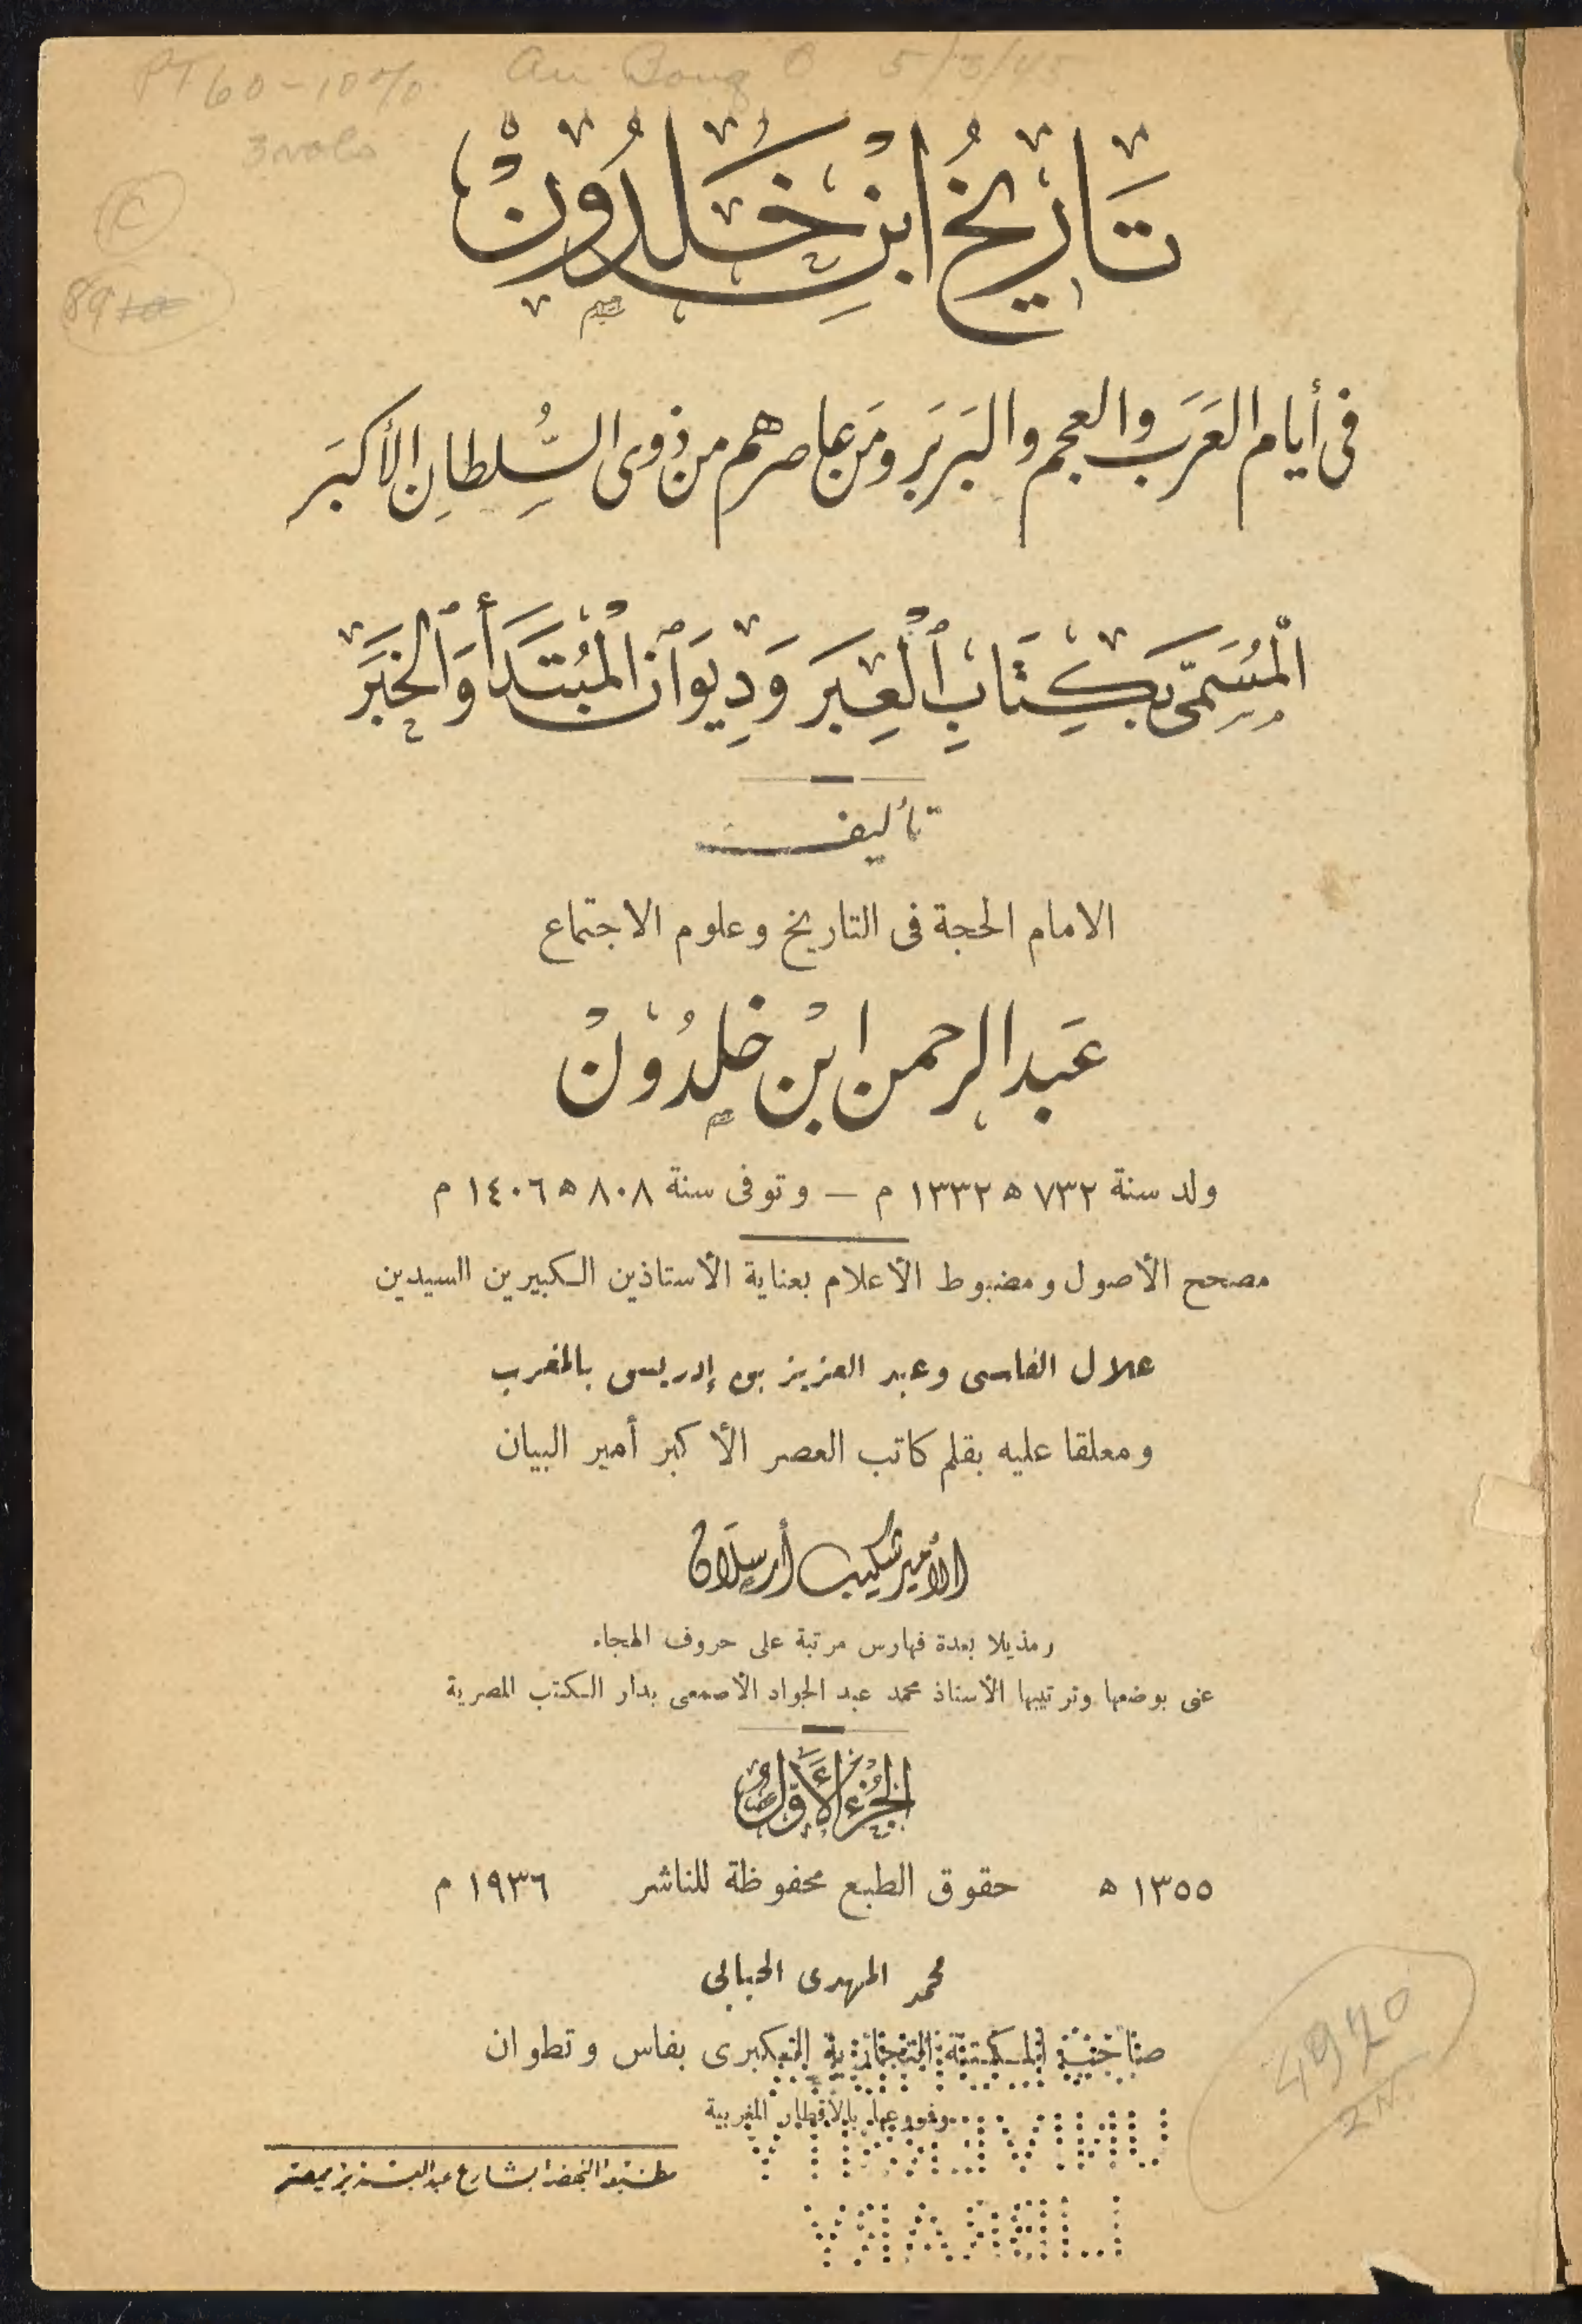 PT60-10% 5/3/45
3 vols
C
89
تَارِيخُ ابْنِ خَلدُونْ
فى أيام العَرَب والعجم والبَربَر ومَن عاصرهم من ذوى السُّلطانِ الأكبَر
الْمُسَمَّى بِكِتَابِ ٱلْعِبَر وَدِيوَانِ الْمُبْتَدَأ وَٱلْخَبَر
تأليف
الامام الحجة فى التاريخ وعلوم الاجتماع
عَبد الرحمن ابْن خلدُوْنْ
ولد سنة ٧٣٢ ه ١٣٣٢ م — وتوفى سنة ٨٠٨ ه ١٤٠٦ م
مصحح الأصول ومضبوط الأعلام بعناية الأستاذين الكبيرين السيدين
علال الفاسى وعبد العزيز بن إدريس بالمغرب
ومعلقا عليه بقلم كاتب العصر الأكبر أمير البيان
الأمير شكيب أرسلان
ومذيلا بعدة فهارس مرتبة على حروف الهجاء
عنى بوضعها وترتيبها الأستاذ محمد عبد الجواد الأصمعى بدار الكتب المصرية
الجُزءُ الأَوَّلُ
١٣٥٥ ه حقوق الطبع محفوظة للناشر ١٩٣٦ م
محمد المهدى الحبابى
صاحب المكتبة التجارية الكبرى بفاس وتطوان
وفروعها بالأقطار المغربية
مطبعة النهضة بشارع عبد العزيز بمصر
4970
2N